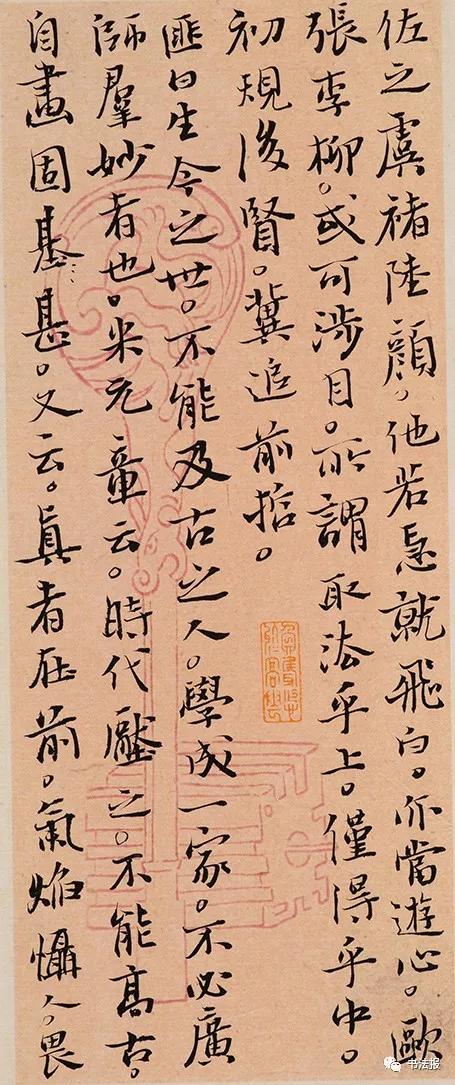 佐之虞褚陸顔。他若急就飛白。亦當遊心。歐
張李柳。或可涉目。所謂取法乎上。僅得乎中。
初規後賢。冀追前哲。
匪曰生今之世。不能及古之人。學成一家。不必廣
師羣妙者也。米元章云。時代壓之。不能高古。
自畫固甚。又云。真者在前。氣焰懾人。畏
书法报